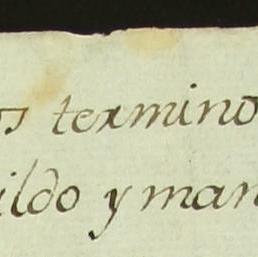 s termino
ildo y man